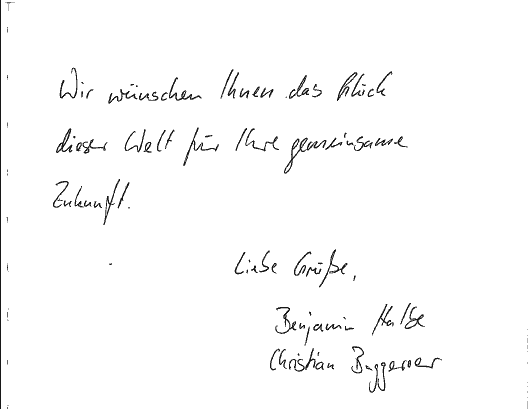 Wir wünschen Ihnen das Glück
dieser Welt für Ihre gemeinsame
Zukunft.
Liebe Grüße,
Benjamin
Christian